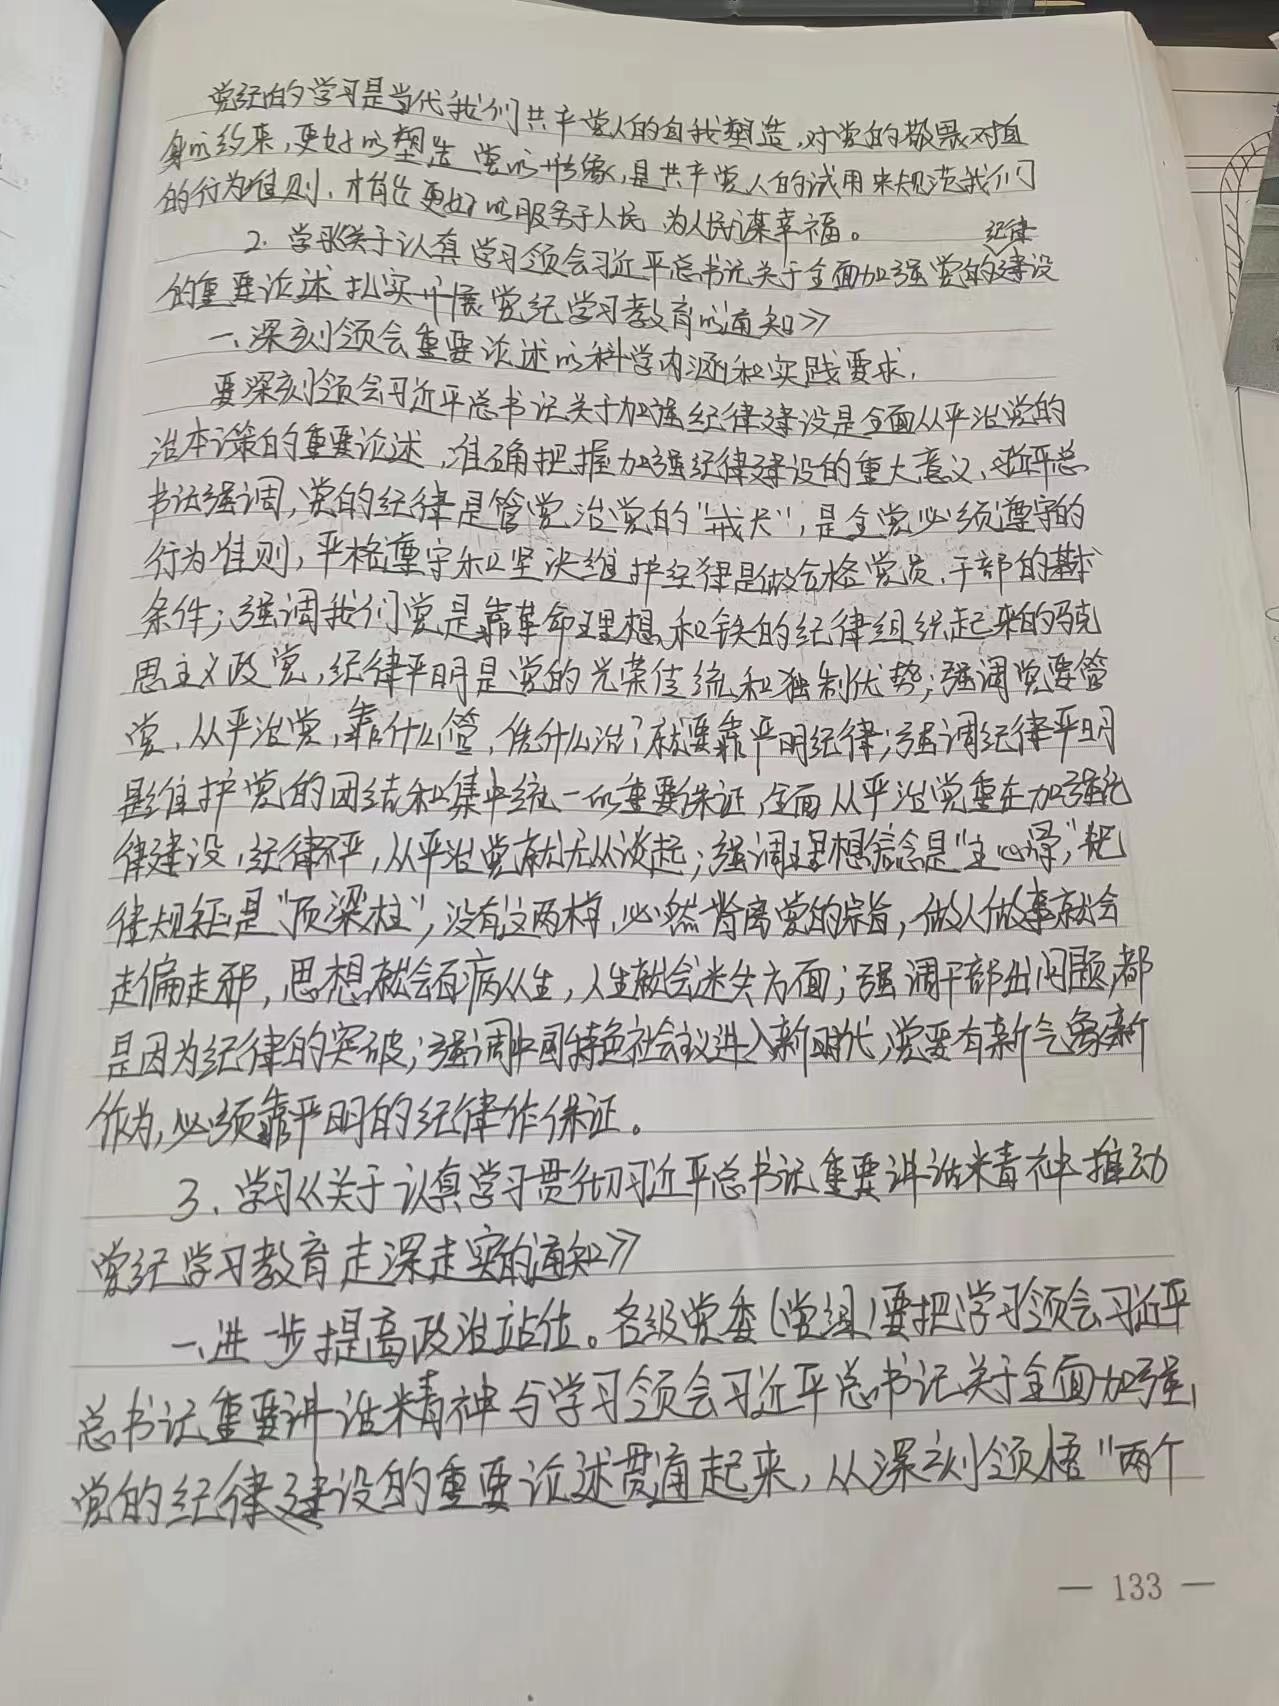 党纪的学习是当代我们共产党人的自我塑造,对党的敬畏对自
身的约束,更好的塑造党的形象,是共产党人的试用来规范我们
的行为准则,才能更好的服务于人民 为人民谋幸福。
2. 学习《关于认真学习领会习近平总书记关于全面加强党的纪律建设
的重要论述扎实开展党纪学习教育的通知》
一、深刻领会重要论述的科学内涵和实践要求,
要深刻领会习近平总书记关于加强纪律建设是全面从严治党的
治本之策的重要论述,准确把握加强纪律建设的重大意义,习近平总
书记强调,党的纪律是管党治党的"戒尺",是全党必须遵守的
行为准则,严格遵守和坚决维护纪律是做合格党员、干部的基本
条件;强调我们党是靠革命理想和铁的纪律组织起来的马克
思主义政党,纪律严明是党的光荣传统和独制优势;强调党要管
党,从严治党,靠什么管,凭什么治?就要靠严明纪律;强调纪律严明
是维护党的团结和集中统一的重要保证,全面从严治党重在加强纪
律建设,纪律不严,从严治党就无从谈起;强调理想信念是"主心骨",纪
律规矩是"顶梁柱",没有这两样,必然背离党的宗旨,做人做事就会
走偏走邪,思想就会百病丛生,人生就会迷失方面;强调干部出问题,都
是因为纪律的突破;强调中国特色社会主义进入新时代,党要有新气象新
作为,必须靠严明的纪律作保证。
3、学习《关于认真学习贯彻习近平总书记重要讲话精神推动
党纪学习教育走深走实的通知》
一、进一步提高政治站位。各级党委(党组)要把学习领会习近平
总书记重要讲话精神与学习领会习近平总书记关于全面加强
党的纪律建设的重要论述贯通起来,从深刻领悟"两个
— 133 —